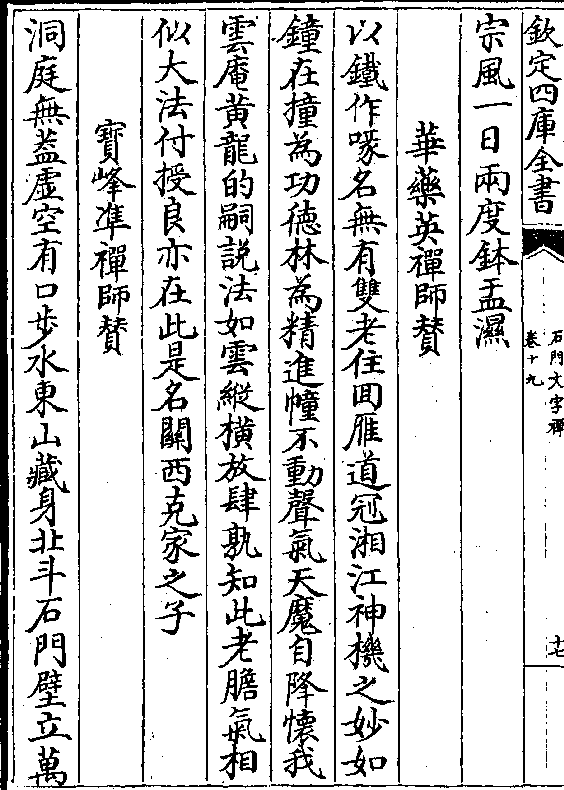 欽定四庫全書
石門文字禪
卷十九
十七
宗風一日兩度鉢盂濕
華藥英禪師賛
以鐵作喙名無有雙老住囬雁道冠湘江神機之妙如
鐘在撞為功德林為精進幢不動聲氣天魔自降懷我
雲庵黃龍的嗣說法如雲縱橫放肆孰知此老膽氣相
似大法付授良亦在此是名關西克家之子
寶峰準禪師賛
洞庭無葢虛空有口步水東山藏身北斗石門壁立萬